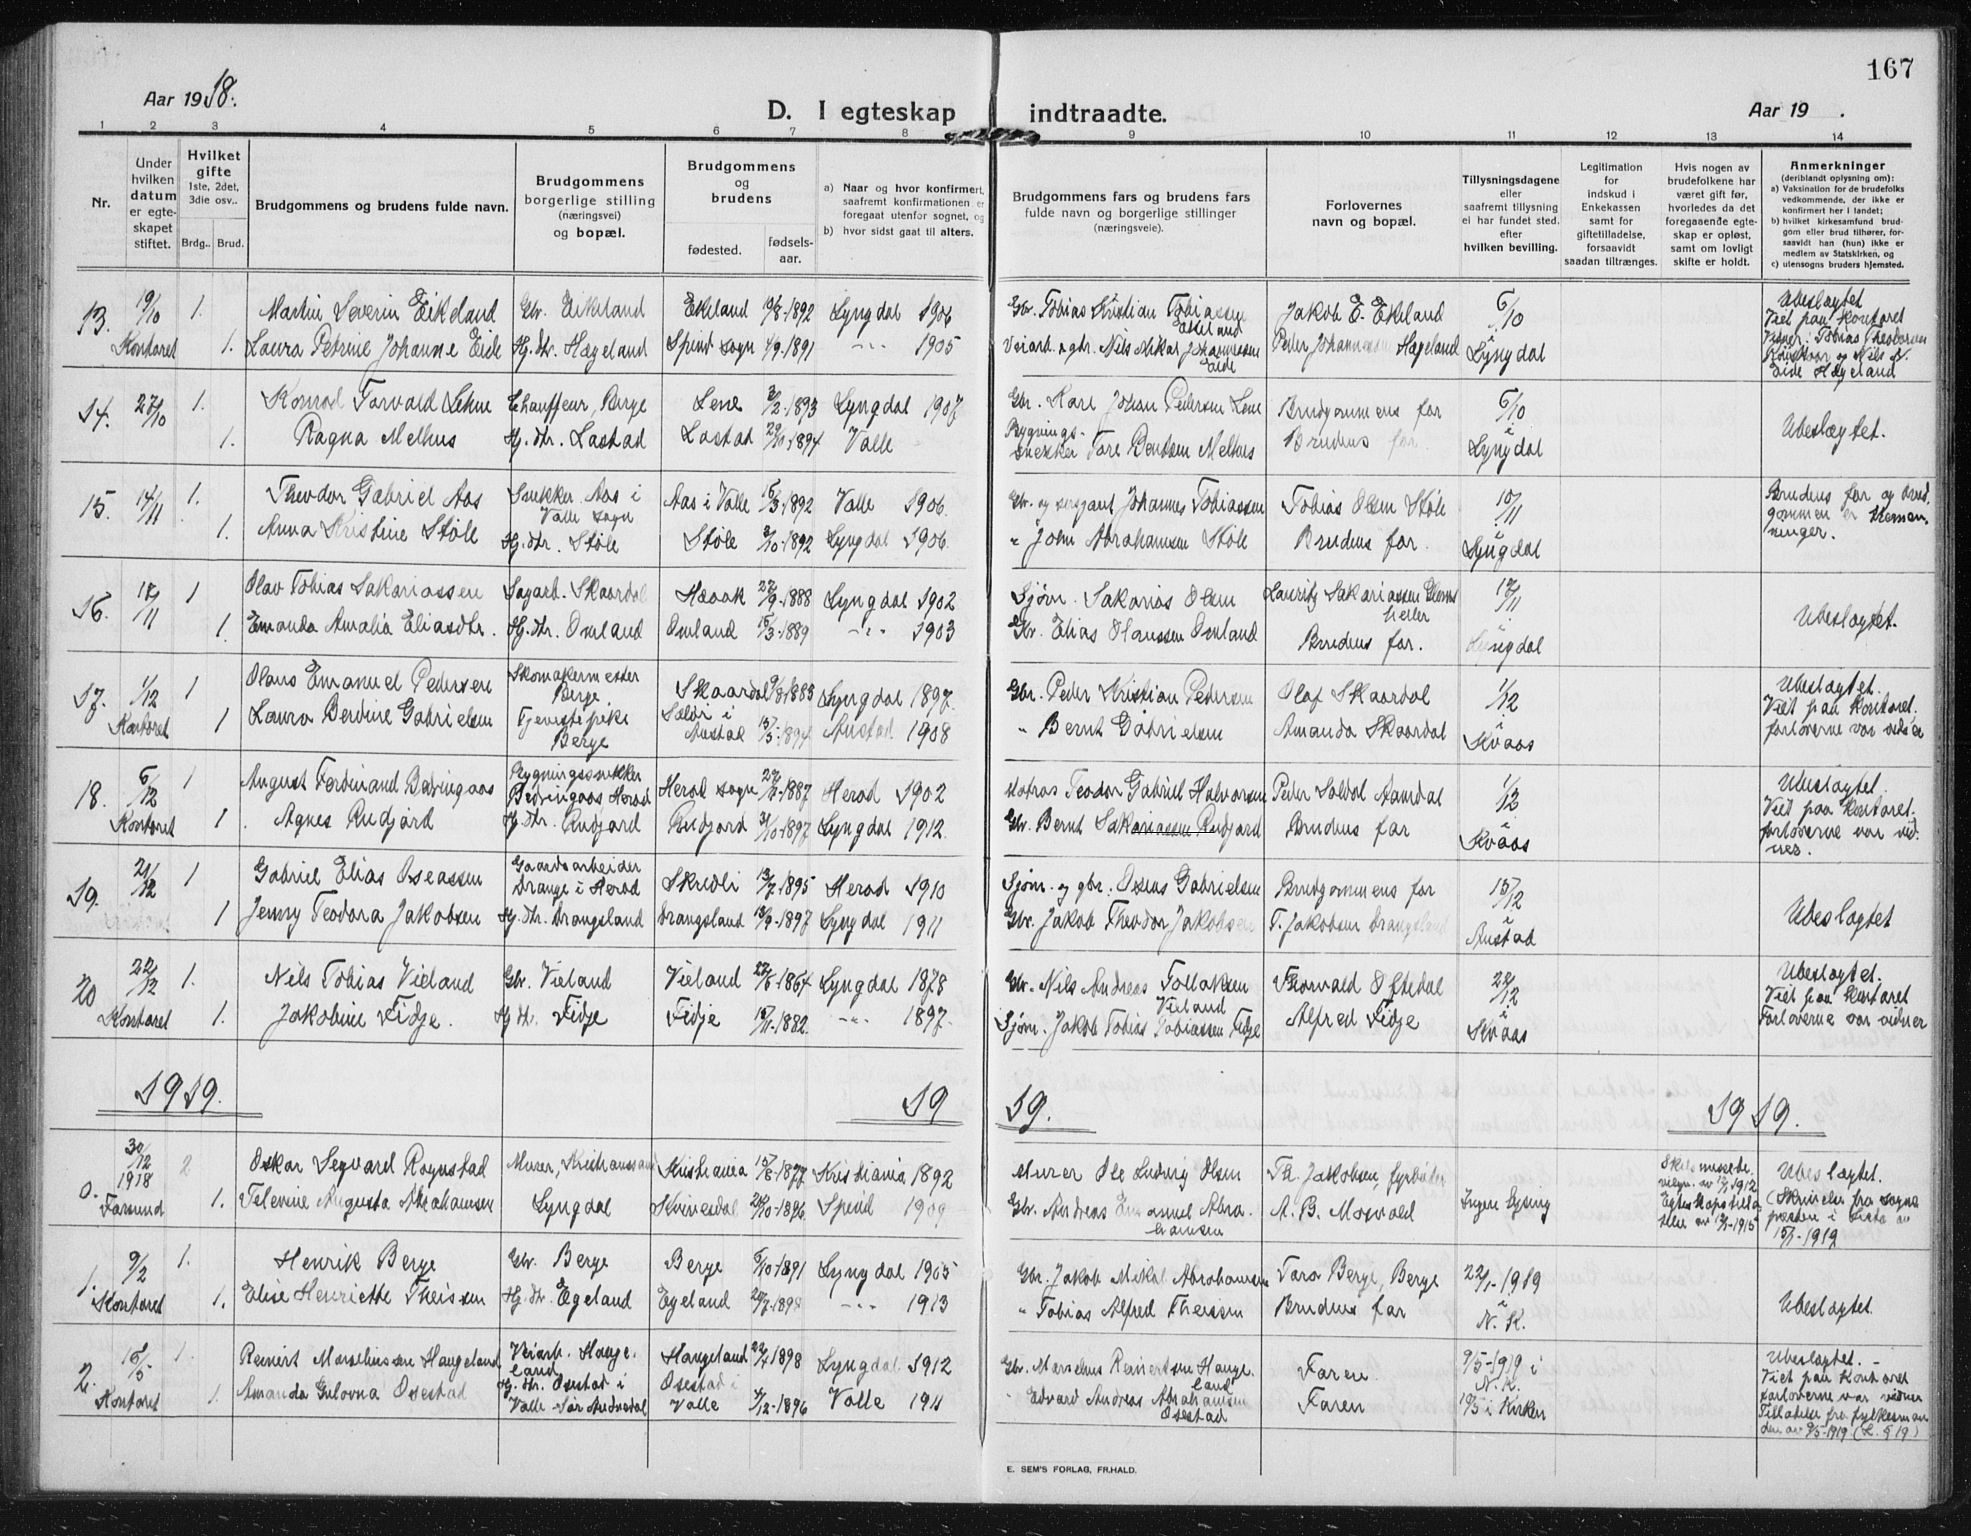 167
Aar 1918.
D. I egteskap indtraadte.
Aar 19 .
1 2 3 4 5 6 7 8 9 10 11 12 13 14
Nr.
Under hvilken datum er egteskapet stiftet.
Hvilket gifte 1ste, 2det, 3die osv..
Brdg.. Brud.
Brudgommens og brudens fulde navn.
Brudgommens borgerlige stilling (næringsvei) og bopæl.
Brudgommens og brudens
fødested. fødsels-aar.
a) Naar og hvor konfirmert, saafremt konfirmationen er foregaat utenfor sognet, og
b) hvor sidst gaat til alters.
Brudgommens fars og brudens fars fulde navn og borgerlige stillinger (næringsveie).
Forlovernes navn og bopæl.
Tillysningsdagene eller saafremt tillysning ei har fundet sted. efter hvilken bevilling.
Legitimation for indskud i Enkekassen samt for giftetilladelse, forsaavidt saadan tiltrænges.
Hvis nogen av brudefolkene har været gift før, hvorledes da det foregaaende egteskap er opløst, samt om lovligt skifte er holdt.
Anmerkninger (deriblandt oplysning om):
a) Vaksination for de brudefolks vedkommende, der ikke er konfirmert her i landet;
b) hvilket kirkesamfund brudgom eller brud tilhører, forsaavidt han (hun) ikke er medlem av Statskirken, og
c) utensogns bruders hjemsted.
13. 19/10 1. Martin Severin Eikeland Gbr. Eikeland Eikeland 19/8-1892 Lyngdal 1906 Gbr. Tobias Kristian Tobiassen Eikeland Jakob E. Eikeland 6/10 Ubeslægtet
Kontoret 1. Laura Petrine Johanne Eide Hj. dtr. Hægeland Spind sogn 4/9-1891 -"- 1905 Veiarb. & gbr. Nils Mikal Johannessen Eide Peder Johannessen Hægeland i Lyngdal Viet paa kontoret
14. 27/10 1. Konrad Torvald Lene Chauffeur, Berge Lene 3/2-1893 Lyngdal 1907 Gbr. Karl Johan Pedersen Lene Brudgommens far 6/10 Ubeslægtet.
1. Ragna Melhus Hj. dtr. Lastad Lastad 29/11-1894 Valle Bygningssnekker Tore Bentsen Melhus Brudens far i Lyngdal
15. 14/11 1. Theodor Gabriel Aas Snekker Aas i Valle sogn Aas i Valle 15/3-1892 Valle 1906. Gbr. og sersjant Johannes Tobiassen Tobias Olsen Støle 10/11 Brudens far og brudgommen er
1. Anna Kristine Støle Hj. dtr. Støle Støle 3/10-1892 Lyngdal 1906. " John Abrahamsen Støle Brudens far. i Lyngdal
16. 17/11 1 Olav Tobias Sakariassen Sagarb. Skaardal 27/9-1888 Lyngdal 1902 Sjøm. Sakarias Olsen Lauritz Sakariassen 10/11 Ubeslægtet.
1. Emanda Amalia Eliasdtr. Hj. dtr. Omland Omland 15/3-1889 -"- 1903 Gbr. Elias Olaussen Omland Brudens far. i Lyngdal
17. 1/12 1 Olaus Emanuel Pedersen Skomakermester Berge Skaardal 9/8-1885 Lyngdal 1897. Gbr. Peder Kristian Pedersen Olaf Skaardal 1/12 Ubeslægtet.
Kontoret 1 Laura Berdine Gabrielsen Tjenestepike Berge Austad 15/5-1894 Austad 1908 " Bernt Gabrielsen Amanda Skaardal i Kvaas Viet paa kontoret. forloverne var vidner
18. 6/12 1 August Ferdinand Bedringaas Bygningssnekker Bedringaas Herad Herad sogn 1887 Herad 1902 Teodor Gabriel Halvorsen Peder Soldal Aamdal 1/12 Ubeslægtet.
Kontoret 1. Agnes Rudjord Hj. dtr. Rudjord Rudjord 31/10-1897 Lyngdal 1912. Gbr. Bernt Sakariassen Rudjord Brudens far i Kvaas Viet paa kontoret. forloverne var vidner.
19. 21/12 1 Gabriel Elias Oseassen Gaardsarbeider Drange i Herad Skredli 13/7-1895 Herad 1910 Sjøm. og gbr. Oseas Gabrielsen Brudgommens far 15/12 Ubeslægtet
1 Jenny Teodora Jakobsen Hj. dtr. Drangsland Drangsland 13/9-1897 Lyngdal 1911 Gbr. Jakob Theodor Jakobsen T. Jakobsen Drangsland i Austad
20 22/12 1. Nils Tobias Vieland Gbr. Vieland Vieland 22/8-1864 Lyngdal 1878 Gbr. Nils Andreas Tollaksen Vieland Thorvald Oftedal 22/12 Ubeslægtet.
Kontoret 1. Jakobine Fidje. Hj. dtr. Fidje Fidje 15/11-1882. -"- 1897. Sjøm. Jakob Tobias Tobiassen Fidje Alfred Fidje i Kvaas Viet paa kontoret Forloverne var vidner
1919. 19 19. 1919.
0. 30/12 1918 2 Oskar Segvard Rognstad Murer, Kristianssand Kristiania 15/8-1877 Kristiania 1892 Murer Ole Ludvig Olsen Th. Jakobsen, fyrbøter Ingen lysning Ubeslægtet.
Farsund 1. Televine Augusta Abrahamsen Lyngdal Kvinesdal 24/10-1896. Spind 1909 Gbr. Andreas Emanuel Abrahamsen A. B. Mosvald
1. 9/2 1. Henrik Berge Gbr. Berge Berge 6/10-1891 Lyngdal 1905 Gbr. Jakob Mikal Abrahamsen Tara Berge, Berge 22/1-1919 Ubeslægtet
Kontoret 1. Elise Henriette Theissen Hj. dtr. Egeland Egeland 24/7-1898 -"- 1913 " Tobias Alfred Theissen Brudens far i N. K.
2. 15/5 1. Reinert Marselussen Haugeland Veiarb. Haugeland Haugeland 22/4 1898 Lyngdal 1912 Gbr. Marselius Reinertsen Haugeland Faren 9/5-1919 i N. K. Ubeslægtet. -
Kontoret 1. Amanda Gulovna Osestad Hj. dtr. Osestad i Valle Sør Audnedal Osestad i Valle 7/12-1896 Valle 1911 " Edvard Andreas Abrahamsen Osestad Faren i Kirken Viet paa kontoret forloverne var vidner Tilladelse fra fylkesmanden av 9/5-1919 (L. § 19)
E. SEM'S FORLAG, FR.HALD.